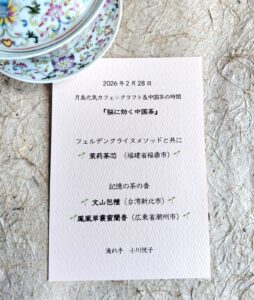 2026年2月28日
月島元気カフェークラフト&中国茶の時間
『脳に効く中国茶』
フェルデンクライスメソッドと共に
茉莉茶芯 (福建省福鼎市)
記憶の茶の香
文山包種 (台湾新北市)
鳳凰単叢蜜蘭香 (広東省潮州市)
淹れ手 小川悦子